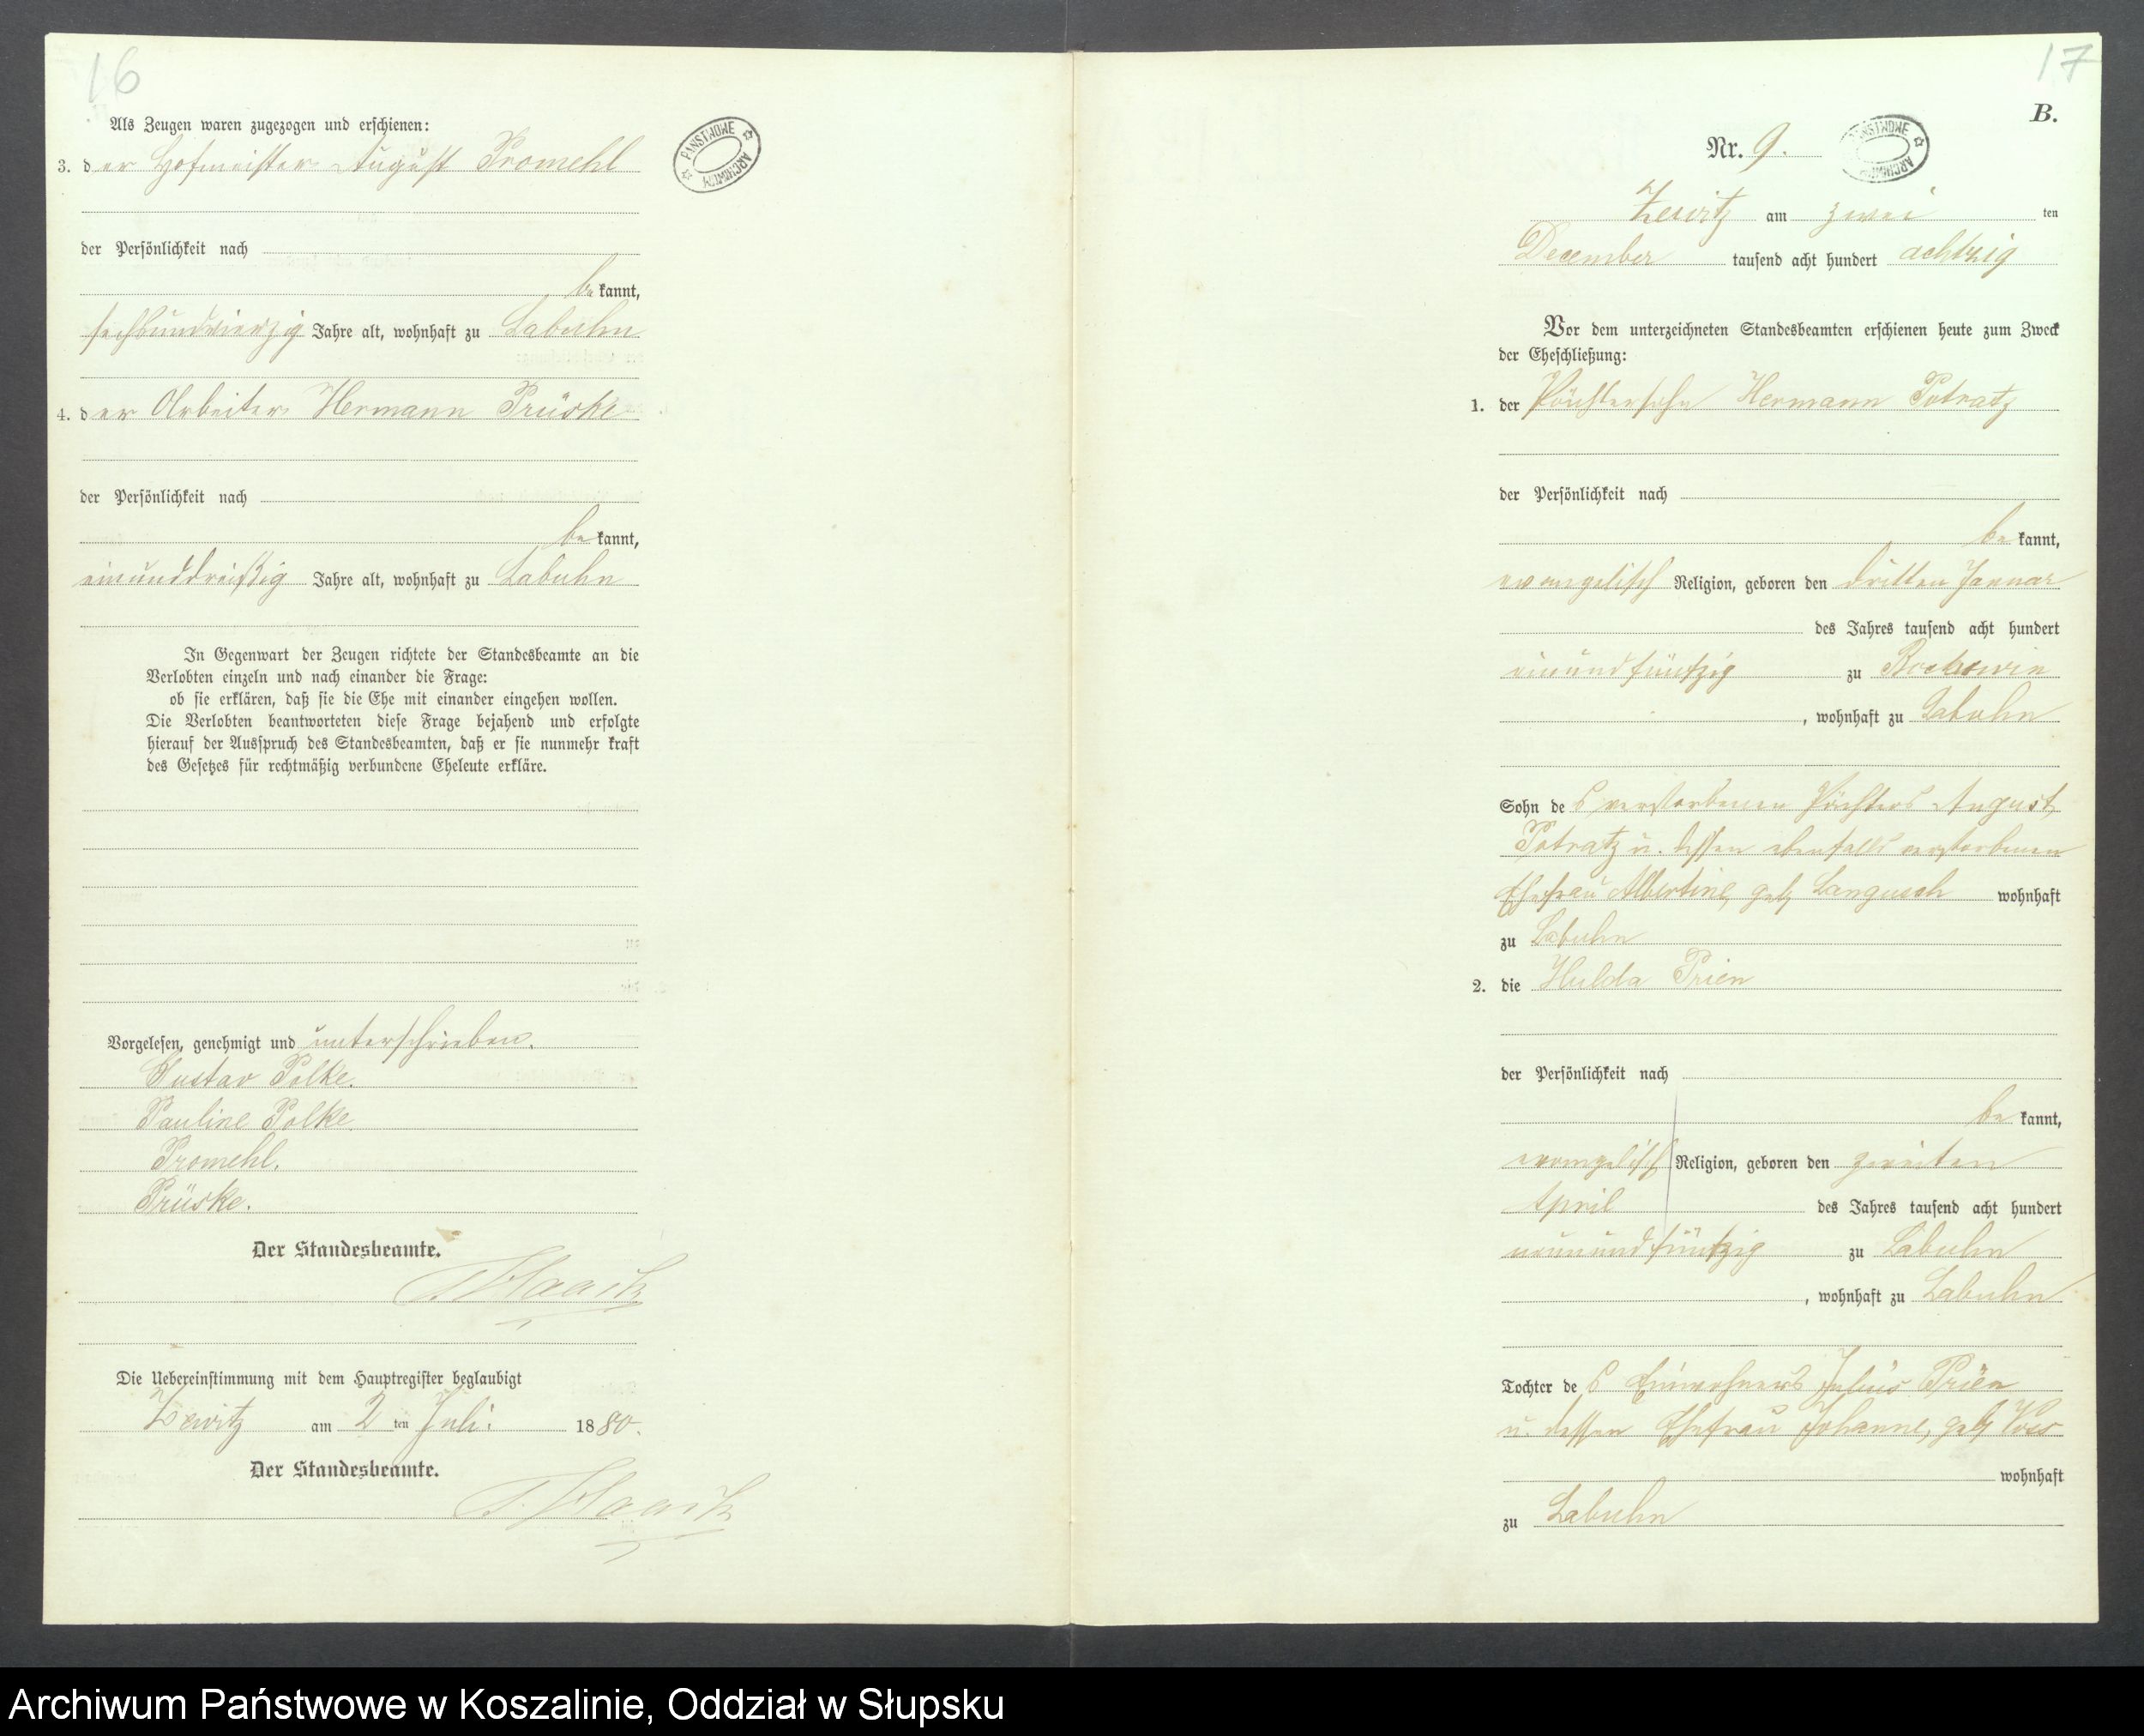 16
Als Zeugen waren zugezogen und erschienen:
3. der Hofmeister August Promehl
PAŃSTWOWE ARCHIWUM
der Persönlichkeit nach
bekannt,
sechsundvierzig Jahre alt, wohnhaft zu Labuhn
4. der Arbeiter Hermann Prüske
der Persönlichkeit nach
bekannt,
einunddreißig Jahre alt, wohnhaft zu Labuhn
In Gegenwart der Zeugen richtete der Standesbeamte an die
Verlobten einzeln und nach einander die Frage:
ob sie erklären, daß sie die Ehe mit einander eingehen wollen.
Die Verlobten beantworteten diese Frage bejahend und erfolgte
hierauf der Ausspruch des Standesbeamten, daß er sie nunmehr kraft
des Gesetzes für rechtmäßig verbundene Eheleute erkläre.
Vorgelesen, genehmigt und unterschrieben.
Gustav Polke.
Pauline Polke.
Promehl.
Prüske.
Der Standesbeamte.
Die Uebereinstimmung mit dem Hauptregister beglaubigt
Zewitz am 2 ten Juli 1880.
Der Standesbeamte.
17
B.
Nr. 9.
PAŃSTWOWE ARCHIWUM
Zewitz am zwei ten
December tausend acht hundert achtzig
Vor dem unterzeichneten Standesbeamten erschienen heute zum Zweck
der Eheschließung:
1. der Pächtersohn Hermann Potratz
der Persönlichkeit nach
bekannt,
evangelisch Religion, geboren den dritten Januar
des Jahres tausend acht hundert
einundfünfzig zu
, wohnhaft zu Labuhn
Sohn des verstorbenen Pächters August
Potratz u. dessen ebenfalls verstorbenen
Ehefrau Albertine, geb. wohnhaft
zu Labuhn
2. die Hulda Prien
der Persönlichkeit nach
bekannt,
evangelisch Religion, geboren den zweiten
April des Jahres tausend acht hundert
neunundfünfzig zu Labuhn
, wohnhaft zu Labuhn
Tochter des Einwohners Julius Prien
u. dessen Ehefrau Johanne, geb. Voss
wohnhaft
zu Labuhn
Archiwum Państwowe w Koszalinie, Oddział w Słupsku